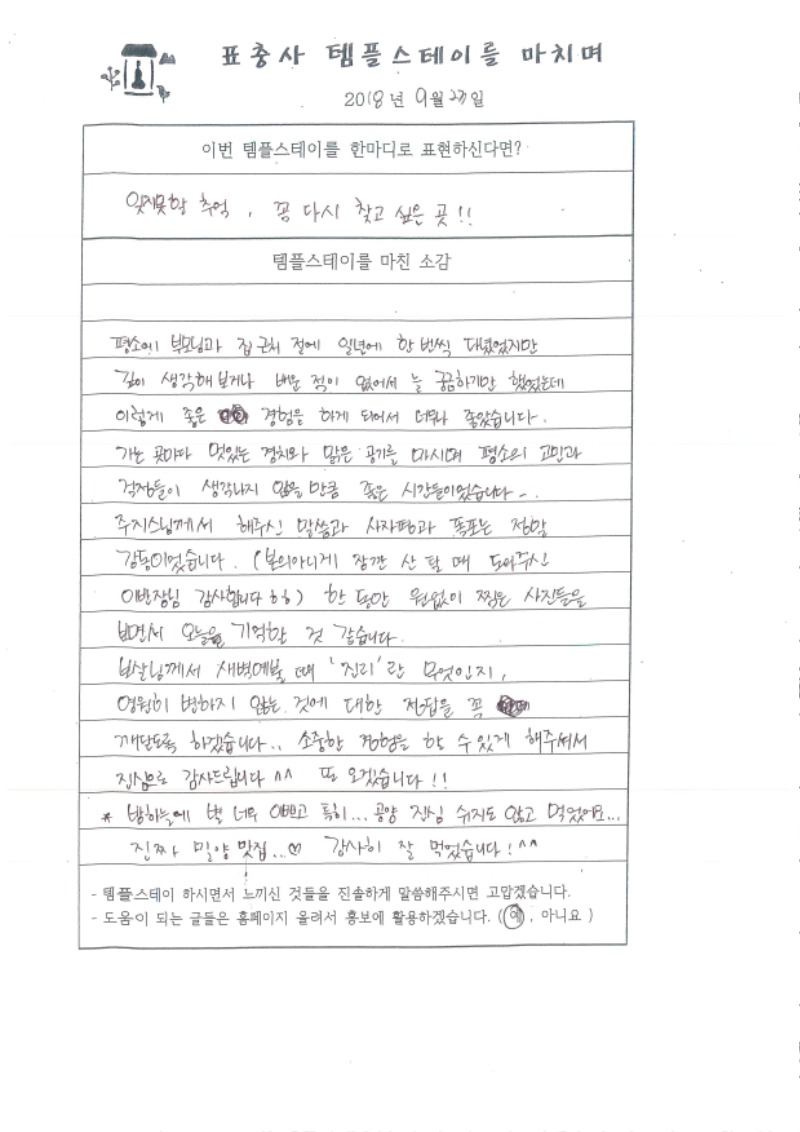 표충사 템플스테이를 마치며
2018년 9월 27일
이번 템플스테이를 한마디로 표현하신다면?
잊지못할 추억, 꼭 다시 찾고 싶은 곳!!
템플스테이를 마친 소감
평소에 부모님과 집 근처 절에 일년에 한 번씩 다녔었지만
깊이 생각해 보거나 배운 적이 없어서 늘 궁금하기만 했었는데
이렇게 좋은 경험을 하게 되어서 너무나 좋았습니다.
가는 곳마다 멋있는 경치와 맑은 공기를 마시며 평소의 고민과
걱정들이 생각나지 않을 만큼 좋은 시간들이었습니다~.
주지스님께서 해주신 말씀과 사자평과 폭포는 정말
감동이었습니다. (본의아니게 잠깐 산 탈 때 도와주신
이반장님 감사합니다 ㅎㅎ) 한 동안 원없이 찍은 사진들을
보면서 오늘을 기억할 것 같습니다.
보살님께서 새벽예불 때 '진리'란 무엇인지,
영원히 변하지 않는 것에 대한 정답을 꼭
깨닫도록 하겠습니다.. 소중한 경험을 할 수 있게 해주셔서
진심으로 감사드립니다 ^^ 또 오겠습니다!!
* 밤하늘에 별 너무 이쁘고 특히... 공양 진심 쉬지도 않고 먹었어요...
진짜 밀양 맛집...♡ 감사히 잘 먹었습니다!^^
- 템플스테이 하시면서 느끼신 것들을 진솔하게 말씀해주시면 고맙겠습니다.
- 도움이 되는 글들은 홈페이지 올려서 홍보에 활용하겠습니다. (예, 아니요)